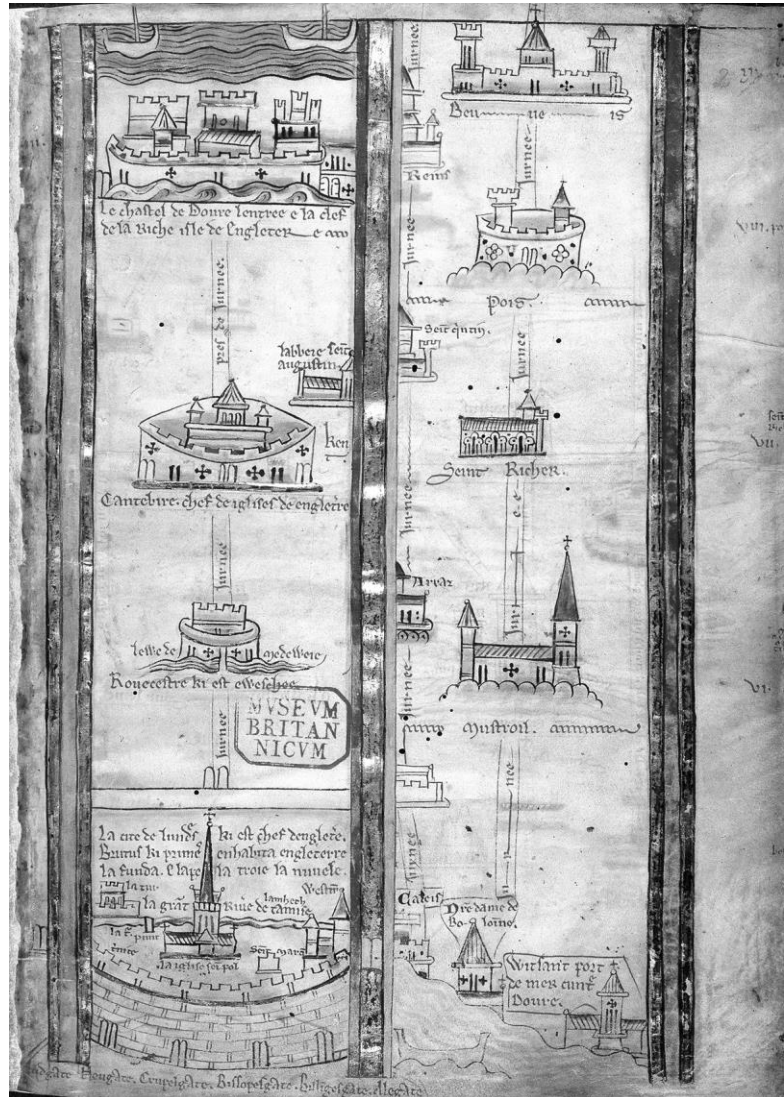 Le chastel de Doure lentree e la clef
de la Riche isle de Engleter e
pres de Jurnee.
labbeie seint
augustin
Ken
Cantebire. chef de iglises de engletere
Jurnee
lewe de medeweie
Rouecestre ki est eweschee
MVSEVM
BRITAN
NICVM
Jurnee
La cite de lundres ki est chef dengletere.
Brutus ki primes enhabita engleterre
la funda. E lapela troie la nuuele.
la tur
Westm
la grant Riue de tamise
lambeth
la iglise sei pol
Bissopesgate.
Jurnee
Beu ne is
Reins
Jurnee
Jurnee
Pois.
Seint quntin
Jurnee
Seint Richer.
Jurnee
Arraz
Jurnee
Mustroil.
Jurnee
Caleis
Nre dame de
Boloine.
Witsant port
de mer cuntre
Doure.